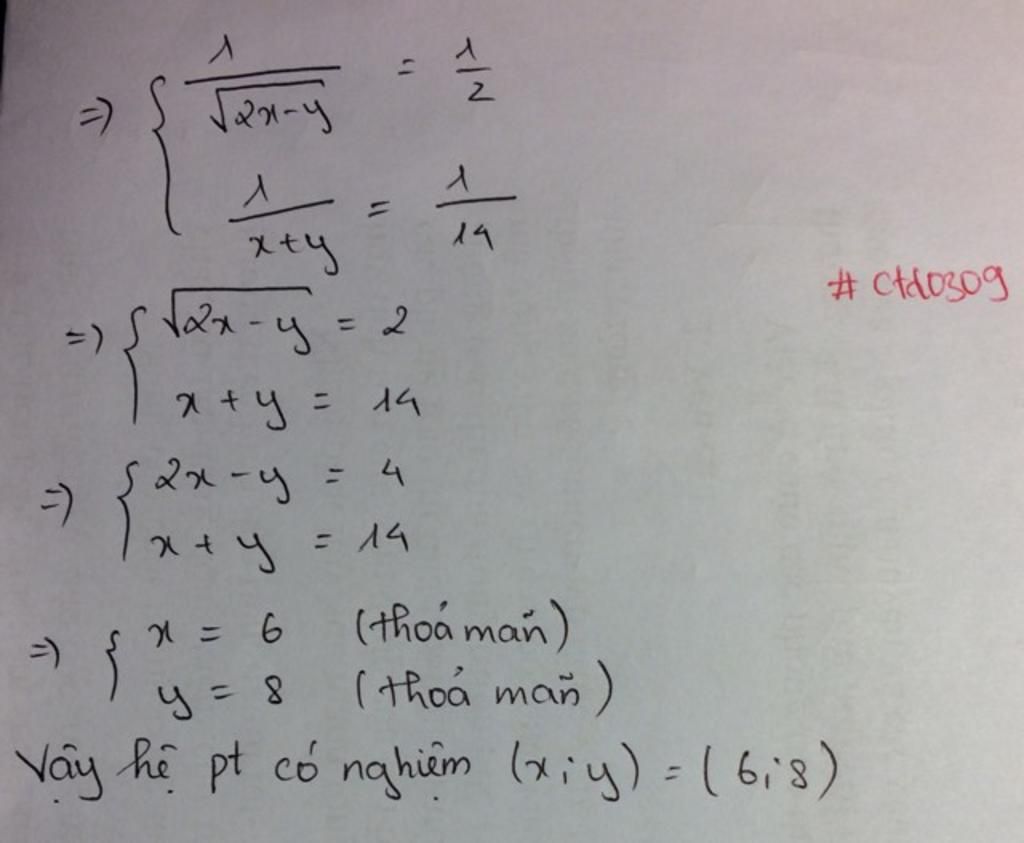 => { 1/√(2x-y) = 1/2
1/(x+y) = 1/14
# ctd0309
=> { √(2x-y) = 2
x + y = 14
=> { 2x - y = 4
x + y = 14
=> { x = 6 (thoả mãn)
y = 8 (thoả mãn)
Vậy hệ pt có nghiệm (x;y) = (6;8)